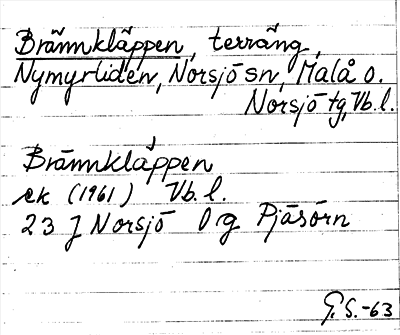 Brännkläppen, terräng,
Nymyrliden, Norsjö sn, Malå o.
Norsjö tg, Vb.l.
Brännkläppen
ek (1961) Vb.l.
23 J Norsjö 0 g Pjäsörn
G.S.-63